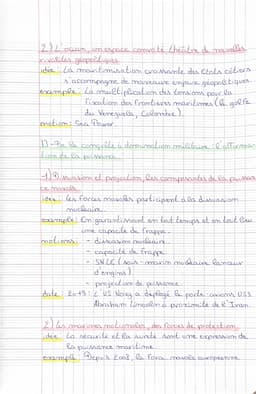 2) L'océan, un espace convoité théâtre de nouvelles
rivalités géopolitiques.
idée : La maritimisation croissante des Etats côtiers
s'accompagne de nouveaux enjeux géopolitiques
exemple : La multiplication des tensions pour la
fixation des frontières maritimes (le golfe
du Venezuela, Colombie).
notion : Sea Power.
II - De la conquête à domination militaire : l'affirma-
tion de la puissance.
1) et projection, les composantes de la puissan-
ce navale
idée : Les forces navales participent à la dissuasion
nucléaire.
exemple : En garantissant en tout temps et en tout lieu
une capacité de frappe.
notions : - dissuasion nucléaire
- capacité de frappe
- SNLE (sous-marin nucléaire lanceur
d'engins)
- projection de puissance
date : 2019 : L'US Navy a déployé le porte-avions USS
Abraham Lincoln à proximité de l'Iran.
2) Les marines nationales, des forces de protection
idée : La sécurité et la sureté sont une expression de
la puissance maritime.
exemple : Depuis 2008, la force navale européenne